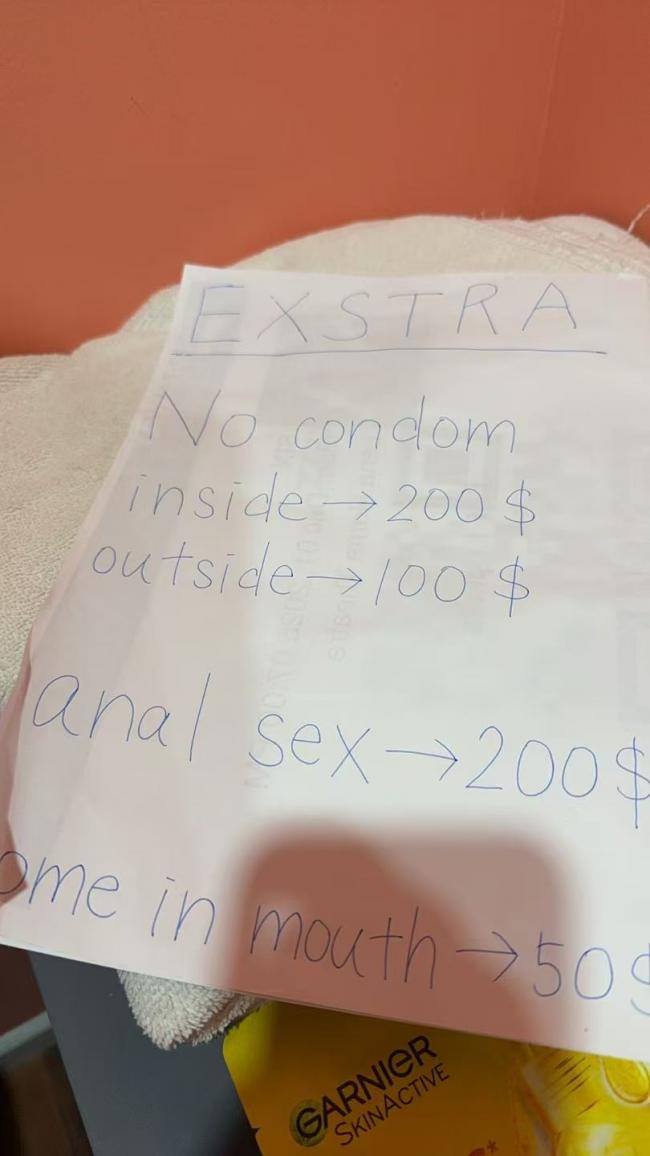 EXSTRA
No condom
inside→200$
outside→100$
anal sex→200$
ome in mouth→50$
GARNIER
SKINACTIVE